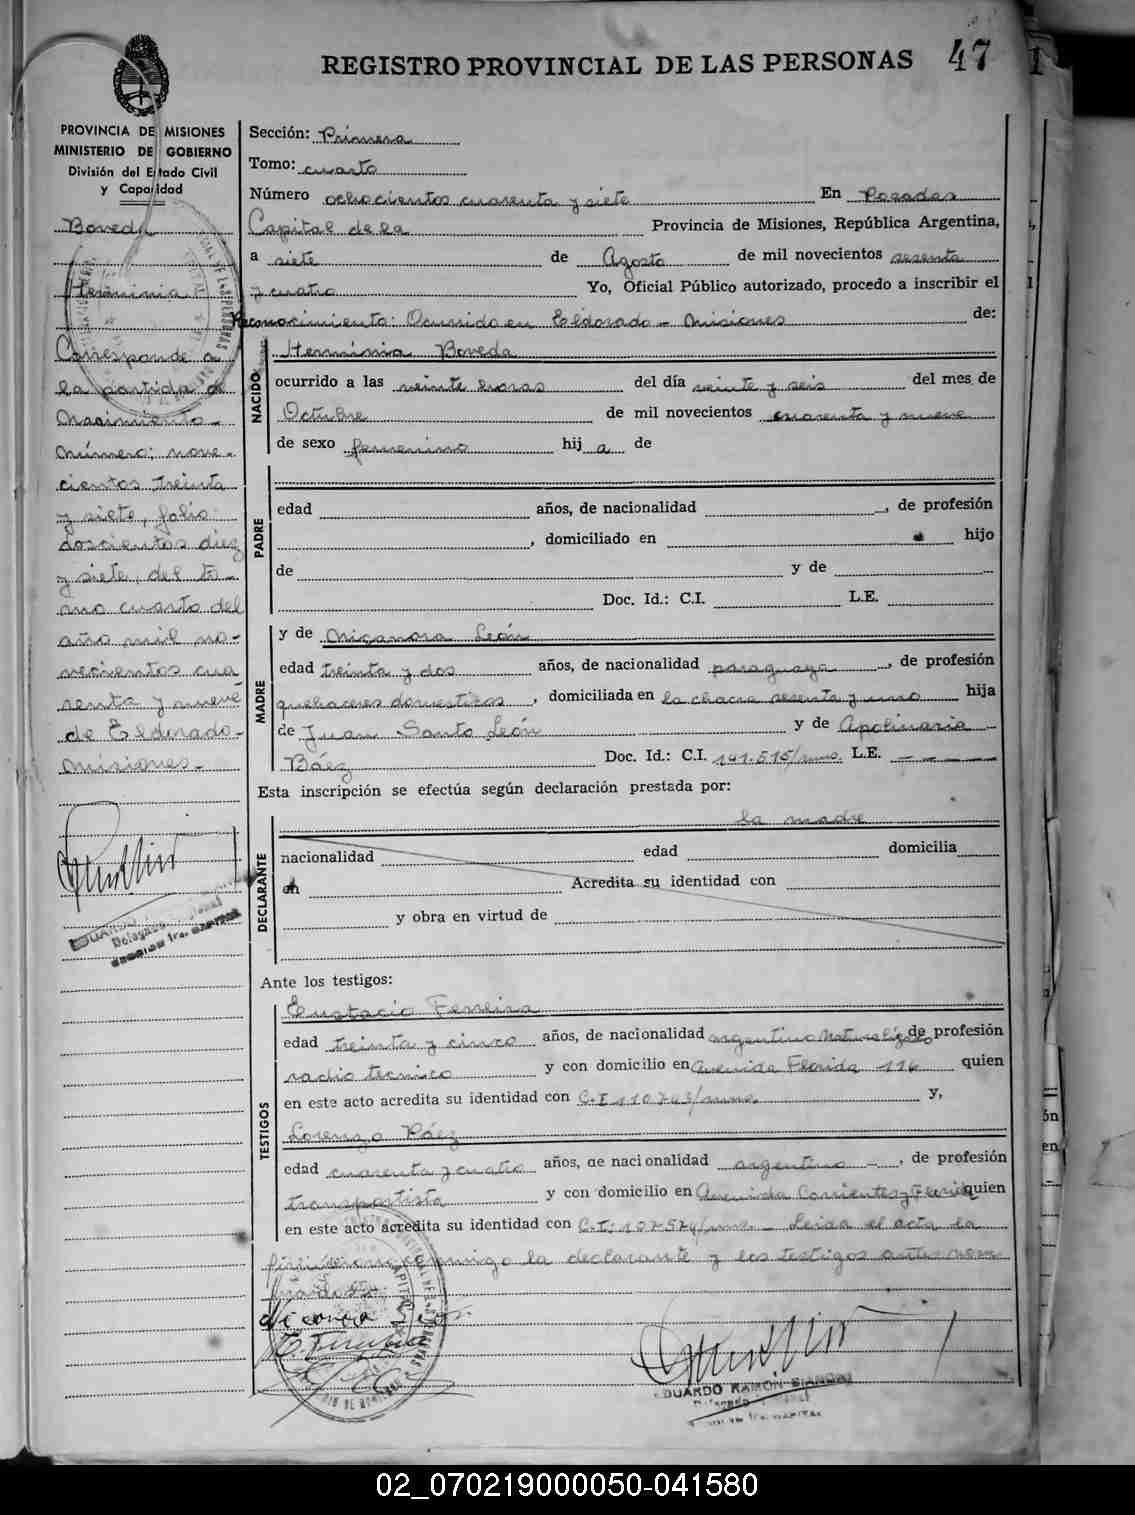 REGISTRO PROVINCIAL DE LAS PERSONAS 47
PROVINCIA DE MISIONES
MINISTERIO DE GOBIERNO
División del Estado Civil
y Capacidad
Boveda
Herminia
Corresponde a
la partida de
Nacimiento
Número: nove-
cientos treinta
y siete, folio
doscientos diez
y siete, del to-
mo cuarto del
año mil no-
vecientos cua
renta y nueve
de Eldorado-
Misiones.-
Delegado
Sección: Primera
Tomo: cuarto
Número ochocientos cuarenta y siete En Posadas
Capital de la Provincia de Misiones, República Argentina,
a siete de Agosto de mil novecientos sesenta
y cuatro Yo, Oficial Público autorizado, procedo a inscribir el
Reconocimiento: Ocurrido en Eldorado - Misiones de:
NACIDO
Herminia Boveda
ocurrido a las veinte horas del día veinte y seis del mes de
Octubre de mil novecientos cuarenta y nueve
de sexo femenino hij a de
PADRE
edad años, de nacionalidad , de profesión
, domiciliado en hijo
de y de
Doc. Id.: C.I. L.E.
MADRE
y de Nicanora León
edad treinta y dos años, de nacionalidad paraguaya , de profesión
quehaceres domésticos , domiciliada en la chacra sesenta y uno hija
de Juan Santo León y de Apolinaria
Báez Doc. Id.: C.I. 141.515/mnes. L.E. - - - -
Esta inscripción se efectúa según declaración prestada por:
la madre
DECLARANTE
nacionalidad edad domicilia
en Acredita su identidad con
y obra en virtud de
Ante los testigos:
TESTIGOS
Eustacio Ferreira
edad treinta y cinco años, de nacionalidad argentino Naturalizado de profesión
radio tecnico y con domicilio en Avenida Florida 116 quien
en este acto acredita su identidad con C.I 110743/mnes. y,
Lorenzo Páez
edad cuarenta y cuatro años, de nacionalidad argentino - , de profesión
transportista y con domicilio en Avenida Corrientes y Florida quien
en este acto acredita su identidad con C.I: 107574/mns. - Leida el acta la
conmigo la declarante y los testigos
E. Ferreira
EDUARDO RAMÓN
02_070219000050-041580